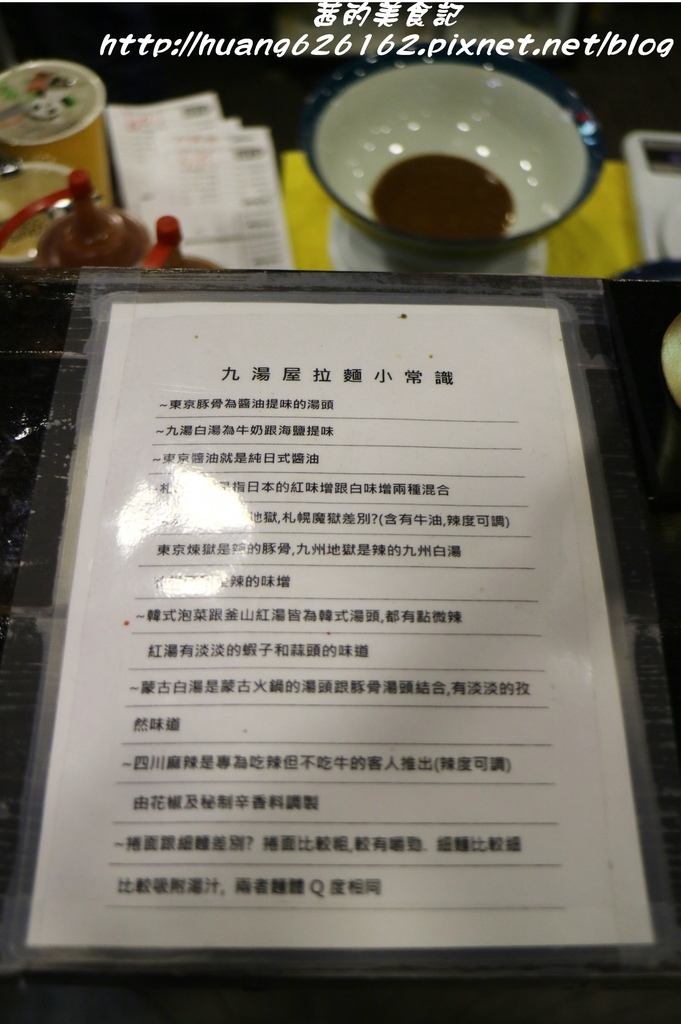 茜的美食記
http://huang626162.pixnet.net/blog
九湯屋拉麵小常識
~東京豚骨為醬油提味的湯頭
~九湯白湯為牛奶跟海鹽提味
~東京醬油就是純日式醬油
~札 是指日本的紅味增跟白味增兩種混合
地獄,札幌魔獄差別?(含有牛油,辣度可調)
東京煉獄是辣的豚骨,九州地獄是辣的九州白湯
辣的味增
~韓式泡菜跟釜山紅湯皆為韓式湯頭,都有點微辣
紅湯有淡淡的蝦子和蒜頭的味道
~蒙古白湯是蒙古火鍋的湯頭跟豚骨湯頭結合,有淡淡的孜
然味道
~四川麻辣是專為吃辣但不吃牛的客人推出(辣度可調)
由花椒及秘制辛香料調製
~捲面跟細麵差別? 捲面比較粗,較有嚼勁. 細麵比較細
比較吸附湯汁, 兩者麵體 Q 度相同